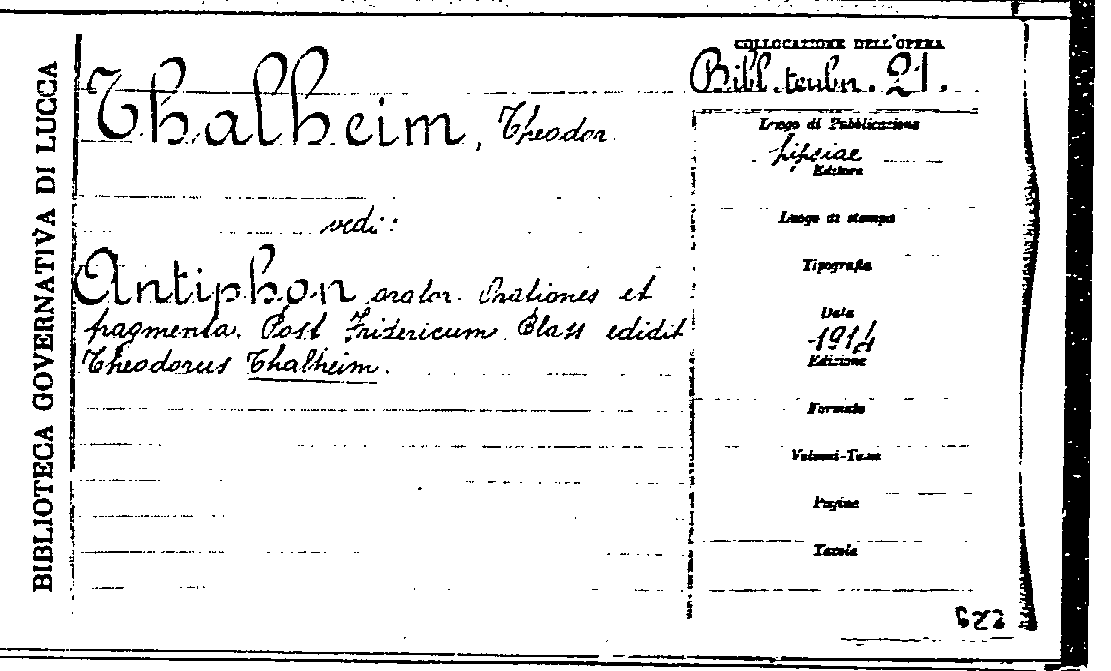 BIBLIOTECA GOVERNATIVA DI LUCCA
COLLOCAZIONE DELL'OPERA
Bibl. teubn. 21.
Thalheim, Theodor
vedi:
Antiphon orator. Orationes et
fragmenta. Post Fridericum Blass edidit
Theodorus Thalheim.
Luogo di Pubblicazione
Lipsiae
Editore
Luogo di stampa
Tipografia
Data
1914
Edizione
Formato
Volumi-Tomi
Pagine
Tavole